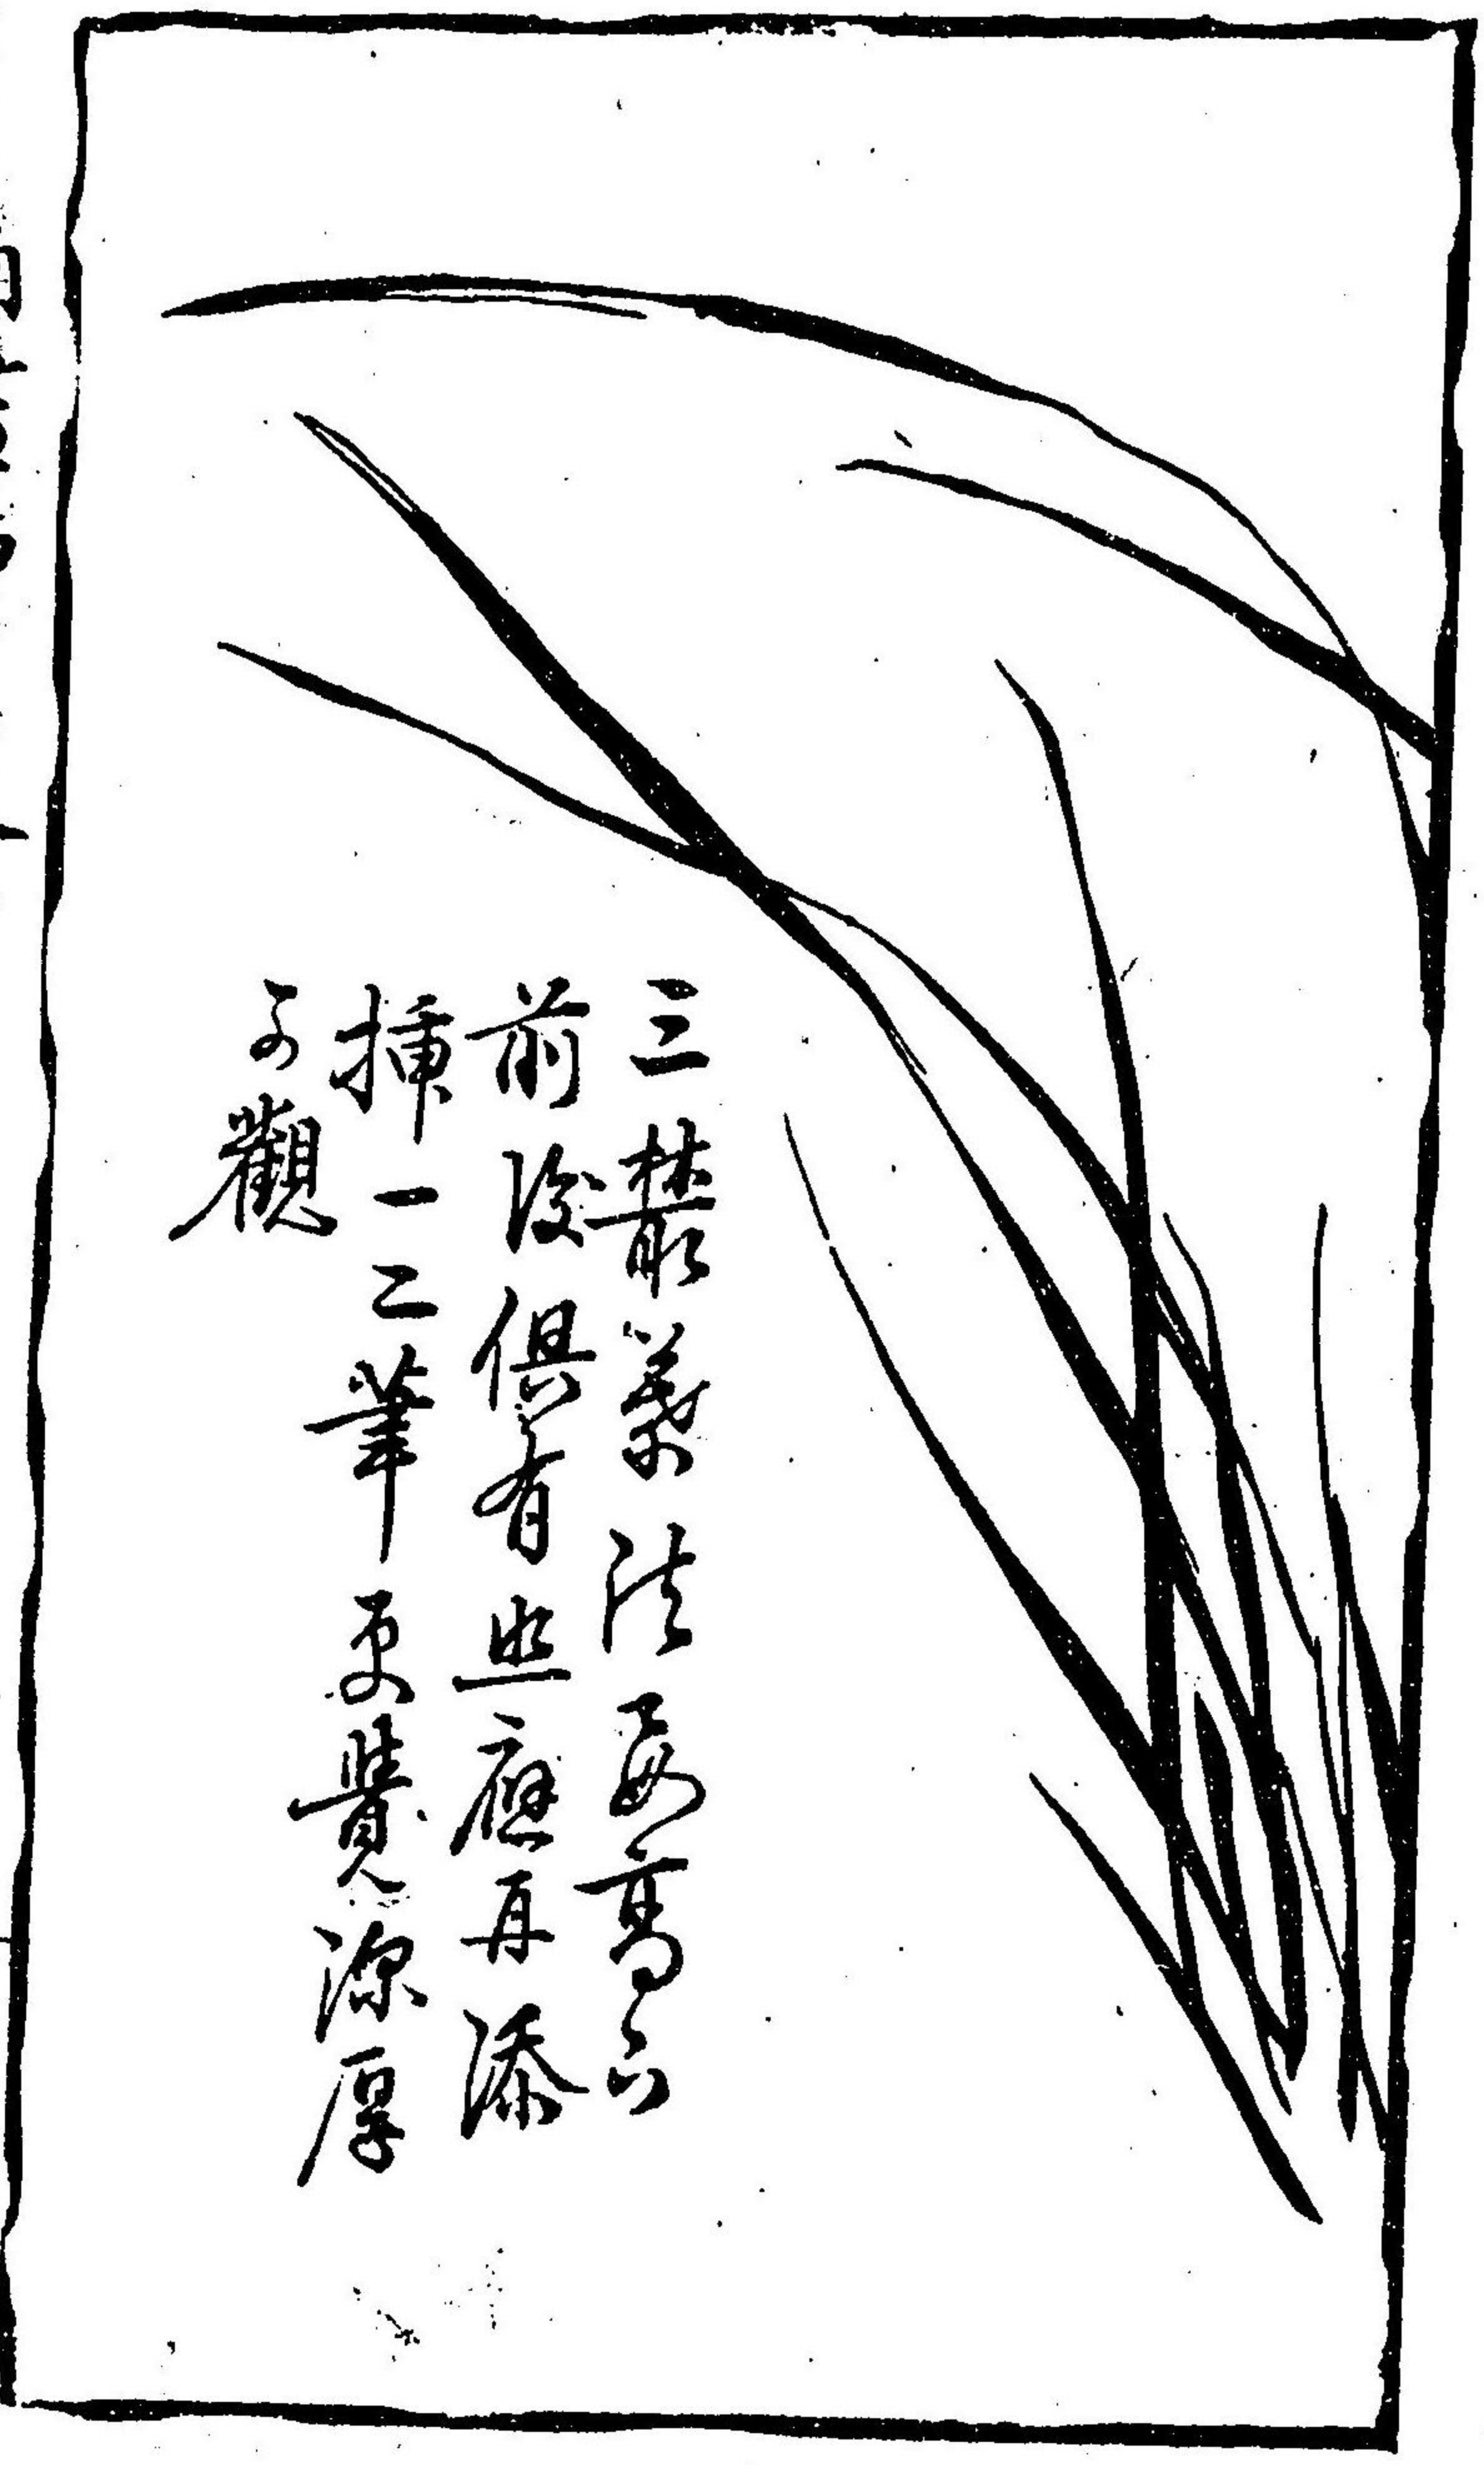 三叢葉法要高下
前後俱有照應再添
揷一二筆更覺深厚
可觀